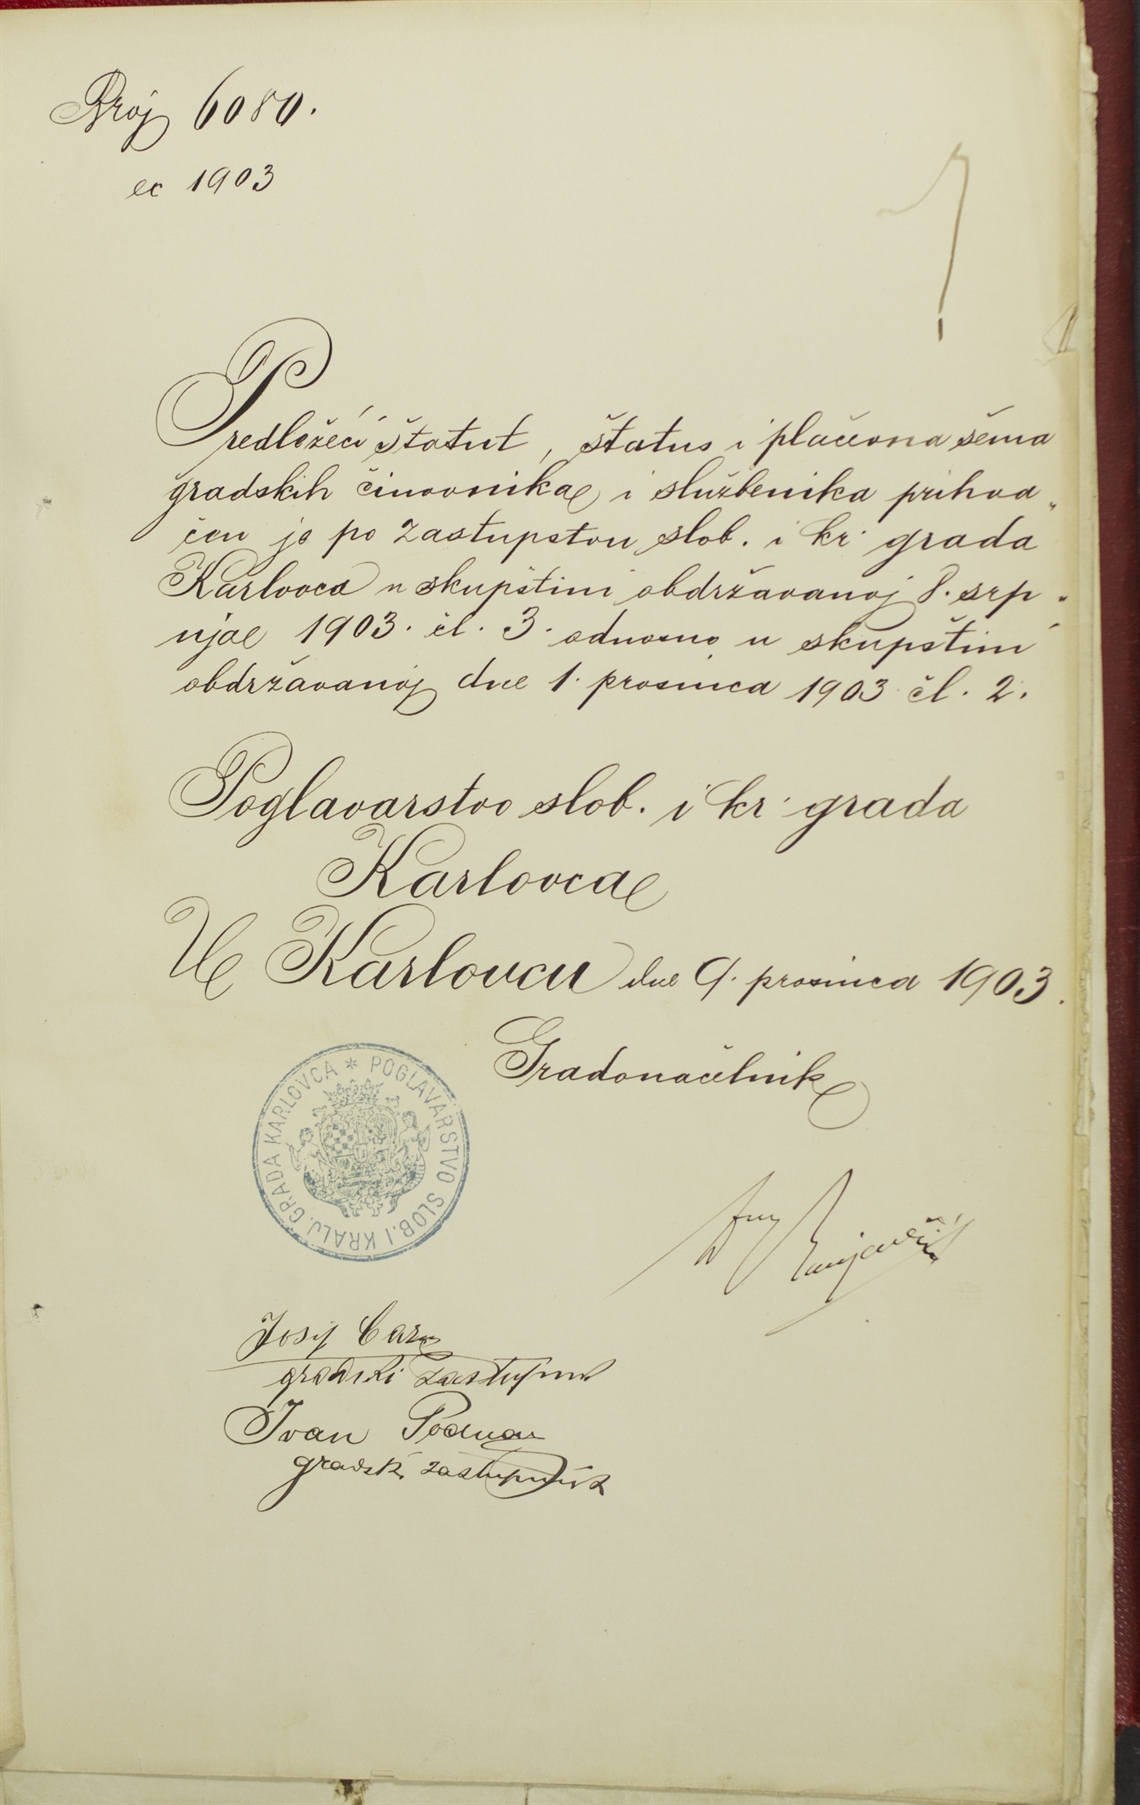 Broj 6080.
ex 1903
Predležeći štatut, štatus i plaćevna šema
gradskih činovnika i službenika prihva„
ćen je po zastupstvu slob. i kr. grada
Karlovca u skupštini obdržavanoj 8. srp„
nja 1903. čl. 3. odnosno u skupštini
obdržavanoj dne 1. prosinca 1903 čl. 2.
Poglavarstvo slob. i kr. grada
Karlovca
U Karlovcu dne 9. prosinca 1903.
Gradonačelnik
POGLAVARSTVO SLOB. I KRALJ. GRADA KARLOVCA *
Josip
gradski zastupnik
Ivan
gradski zastupnik